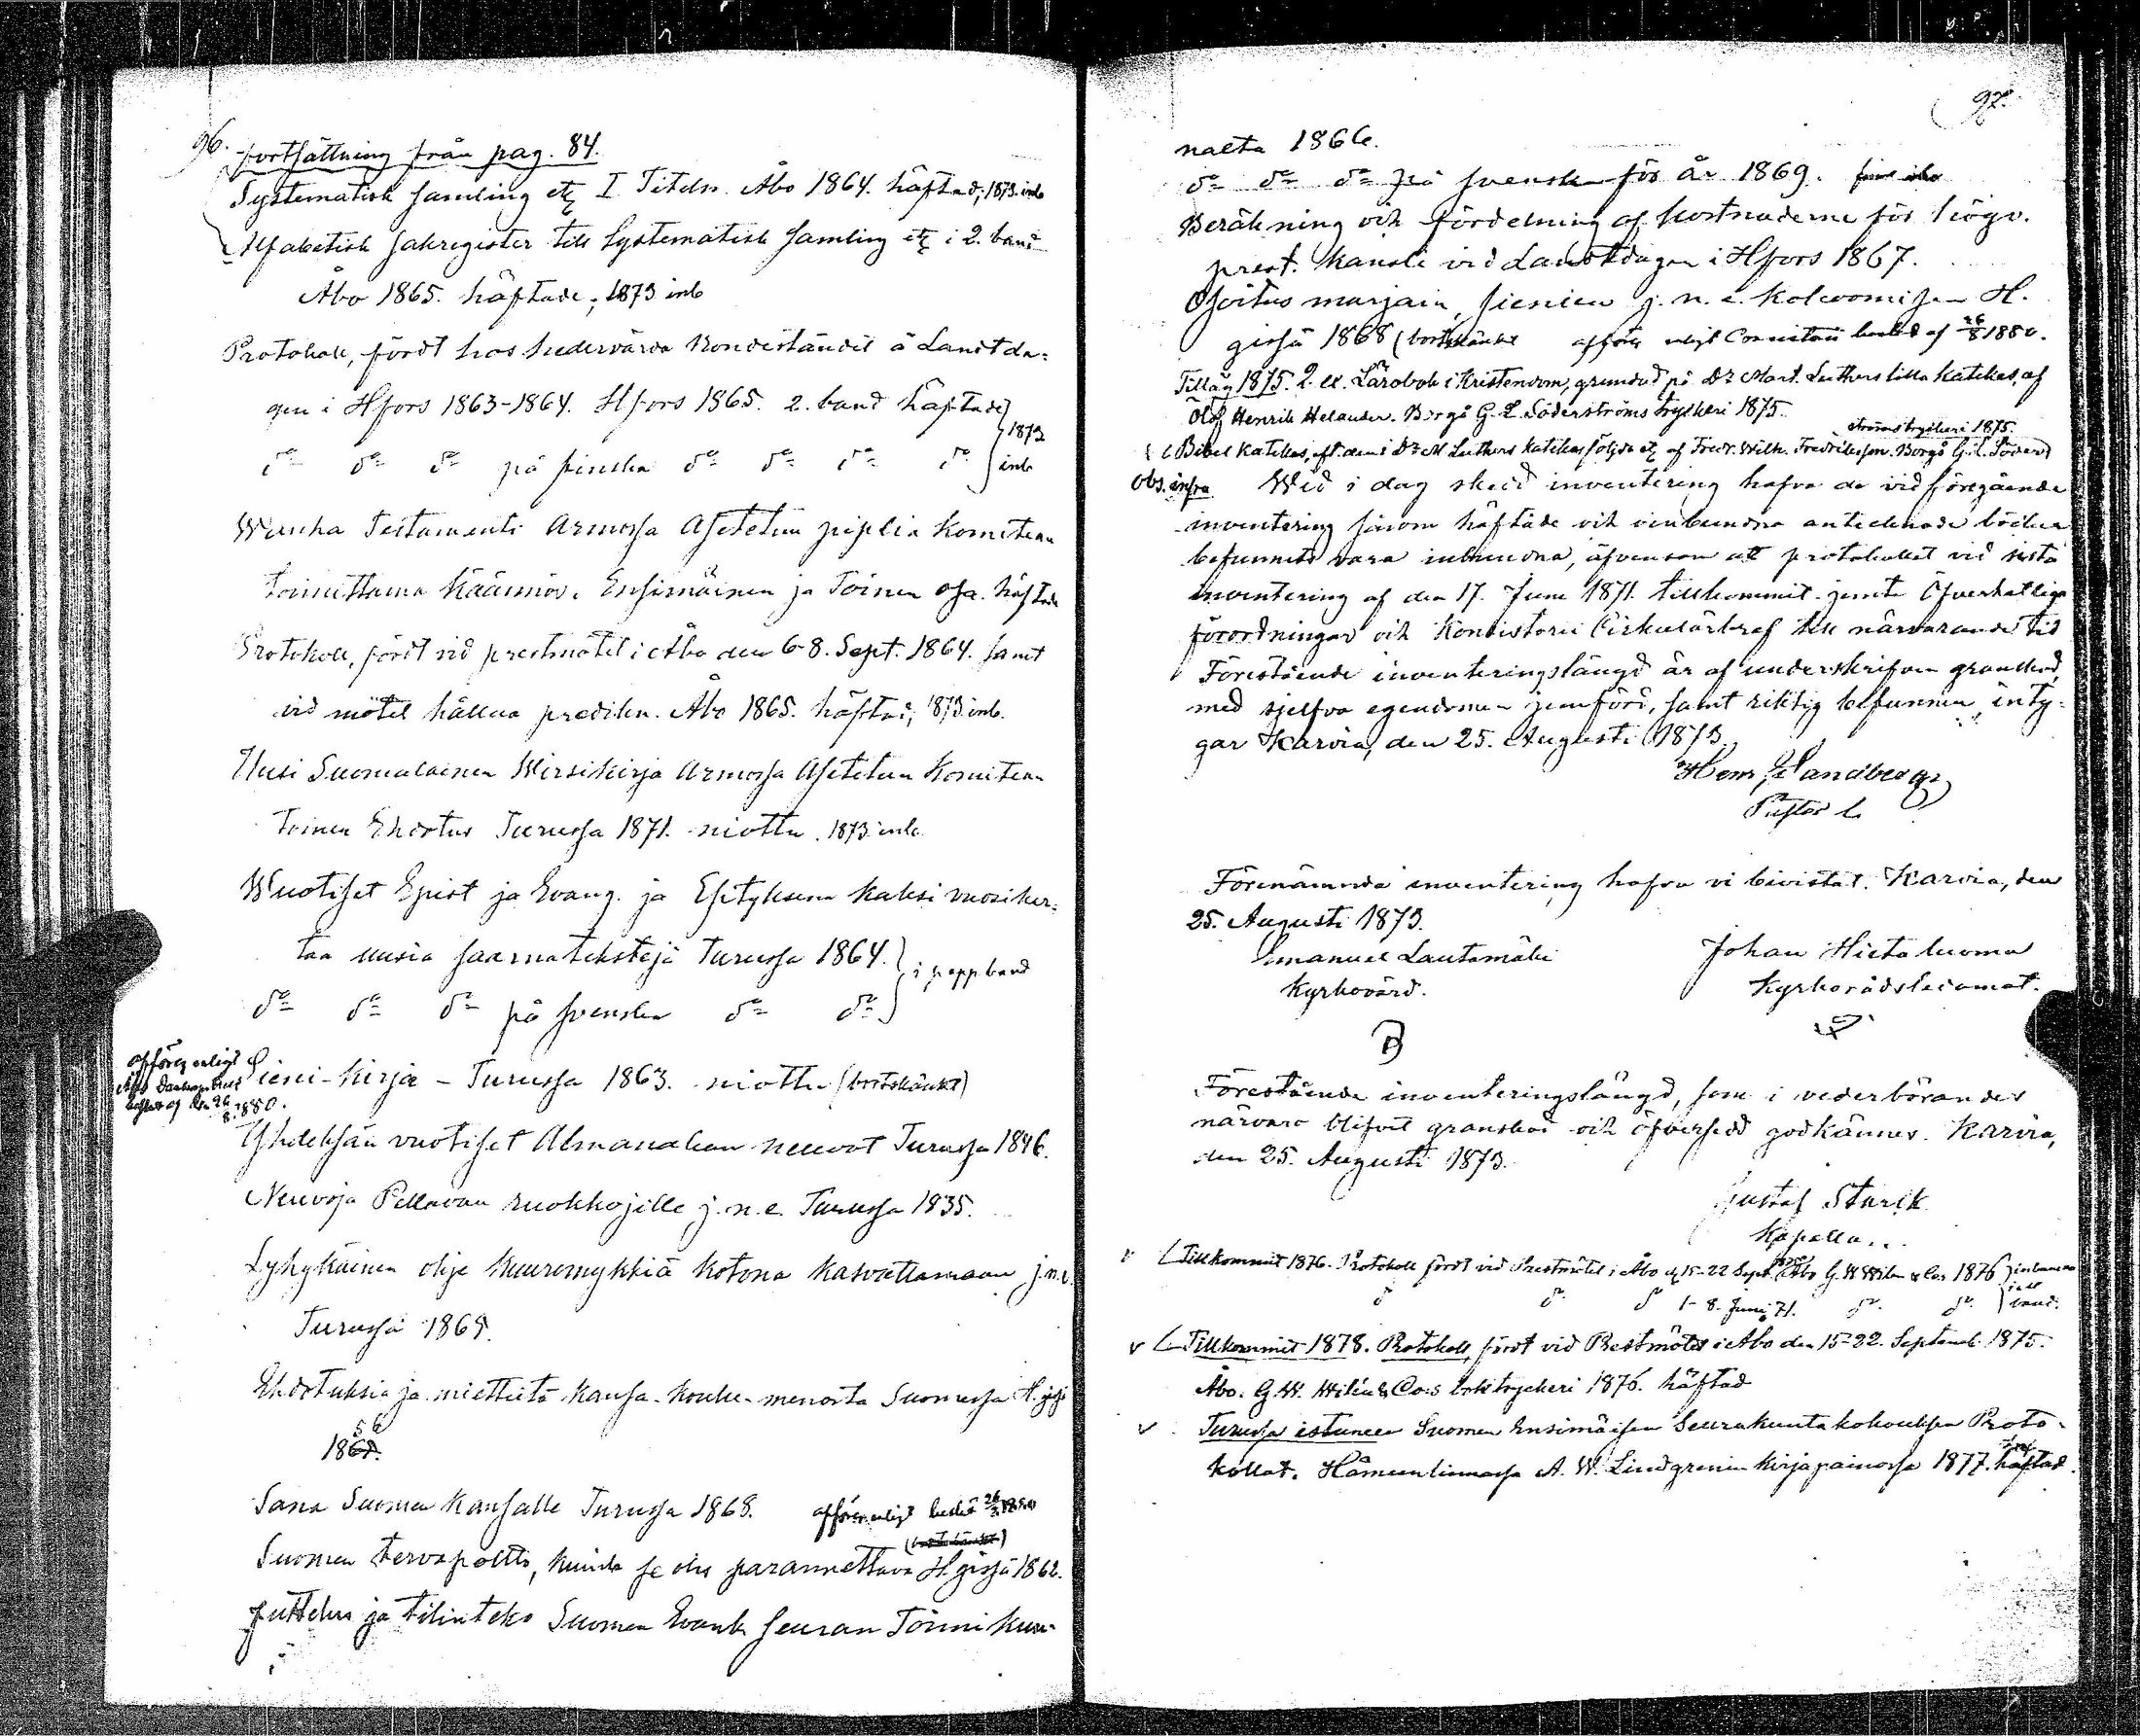 96.
fortsättning från pag. 84.
Systematisk samling etc I Titeln. Åbo 1864. häftad; 1873 inb
Alfabetisk sakregister till Systematisk samling etc i 2. band
Åbo 1865. häftade; 1873 inb
Protokoll, fördt hos hedervärda Bondeståndet å Landtda-
gen i Hfors 1863-1864. Hfors 1865. 2. band häftade
do do do på finska do do do do
1873
inb
Wanha Testamenti Armossa Asetetun piplia Komitean
toimittama Käännös. Ensimäinen ja Toinen osa. häftade
Protokoll, fördt vid prestmötet i Åbo den 6-8. Sept. 1864. samt
vid mötet hållna predikn. Åbo 1865. häftad; 1873 inb.
Uusi Suomalainen Wirsikirja Armossa Asetetun Komitean
Toinen Ehdotus Turussa 1871. niottu. 1873 inb.
Wuotiset Epist ja Evang. ja Esityksenä kaksi vuosiker-
taa uusia saarnatekstejä Turussa 1864.
do do do på svenska do do
i pappband
afföres enligt
beslut af den 26/8 1880.
Sieni-Kirja - Turussa 1863. niottu (bortskänkt)
Yhdeksän vuotiset Almanakan neuvot Turussa 1846.
Neuvoja Pellavan ruokkojille j.n.e. Turussa 1835.
Lyhykäinen ohje kuuromykkiä kotona kasvattamaan j.n.e.
Turussa 1865.
Ehdotuksia ja mietteitä kansa-koulu-menosta Suomessa H.gissä
56
1867.
Sana Suomen kansalle Turussa 1868. afföres enligt beslut 26/8 1880
(bortskänkt)
Suomen tervapoltto, kuinka se olis parannettava H.gissä 1862.
Juttelus ja tilinteko Suomen Evank seuran Toimikun-
97.
nalta 1866.
do do do på svenska för år 1869.
Beräkning och fördelning af kostnaderne för högv.
prest. kansli vid Landtdagen i Hfors 1867.
Osoitus marjain, sienien j.n.e. kokoomisen H.
gissä 1868 (bortskänkt afföres enligt beslut af 26/8 1880.
Tilläg 1875. 2. ex. Lärobok i Kristendom, grundad på Dr Mart. Luthers lilla Katekes, af
Olof Henrik Helander. Borgå G. L. Söderströms tryckeri 1875.
ströms tryckeri 1875.
Bibel Katekes, Dr M Luthers Katekes följde etc af Fredr. Wilh. Fredriksson. Borgå G. L. Söder
Obs. infra Wid i dag skedd inventering hafva de vid föregående
inventering såsom häftade och oinbundna antecknade böcker
befunnits vara inbundna, äfvensom att protokollet vid sista
inventering af den 17. Juni 1871. tillkommit jemte Öfverhetliga
förordningar och Konsistorii Cirkulärbref till närvarande tid
Förestående inventeringslängd är af underskrifven granskad,
med sjelfva egendomen jemförd, samt riktig befunnen, inty-
gar Karvia, den 25. Augusti 1873.
Henr. Sandberg
Pastor l.
Förenämnda inventering hafva vi bivistat. Karvia, den
25. Augusti 1873.
Emanuel Lautamäki
Kyrkovärd.
Johan Hietaluoma
Kyrkorådsledamot.
Förestående inventeringslängd, som i vederbörandes
närvaro blifvit granskad och öfversedd godkännes. Karvia,
den 25. Augusti 1873.
Gustaf Starck
Kapellan.
Tillkommit 1876. Protokoll fördt vid Prestmötet i Åbo d. 15-22 Sept. 1875 Åbo G. W. Wilen & Co 1876
do do do 1-8. Juni 71. do do
Tillkommit 1878. Protokoll, fördt vid Prestmötet i Åbo den 15-22. Septemb. 1875.
Åbo. G. W. Wilén & Co:s boktryckeri 1876. häftad
Turussa istuneen Suomen Ensimäisen Seurakuntakokouksen Proto-
kollat. Hämeenlinnassa A. W. Lindgrenin kirjapainossa 1877. häftad.